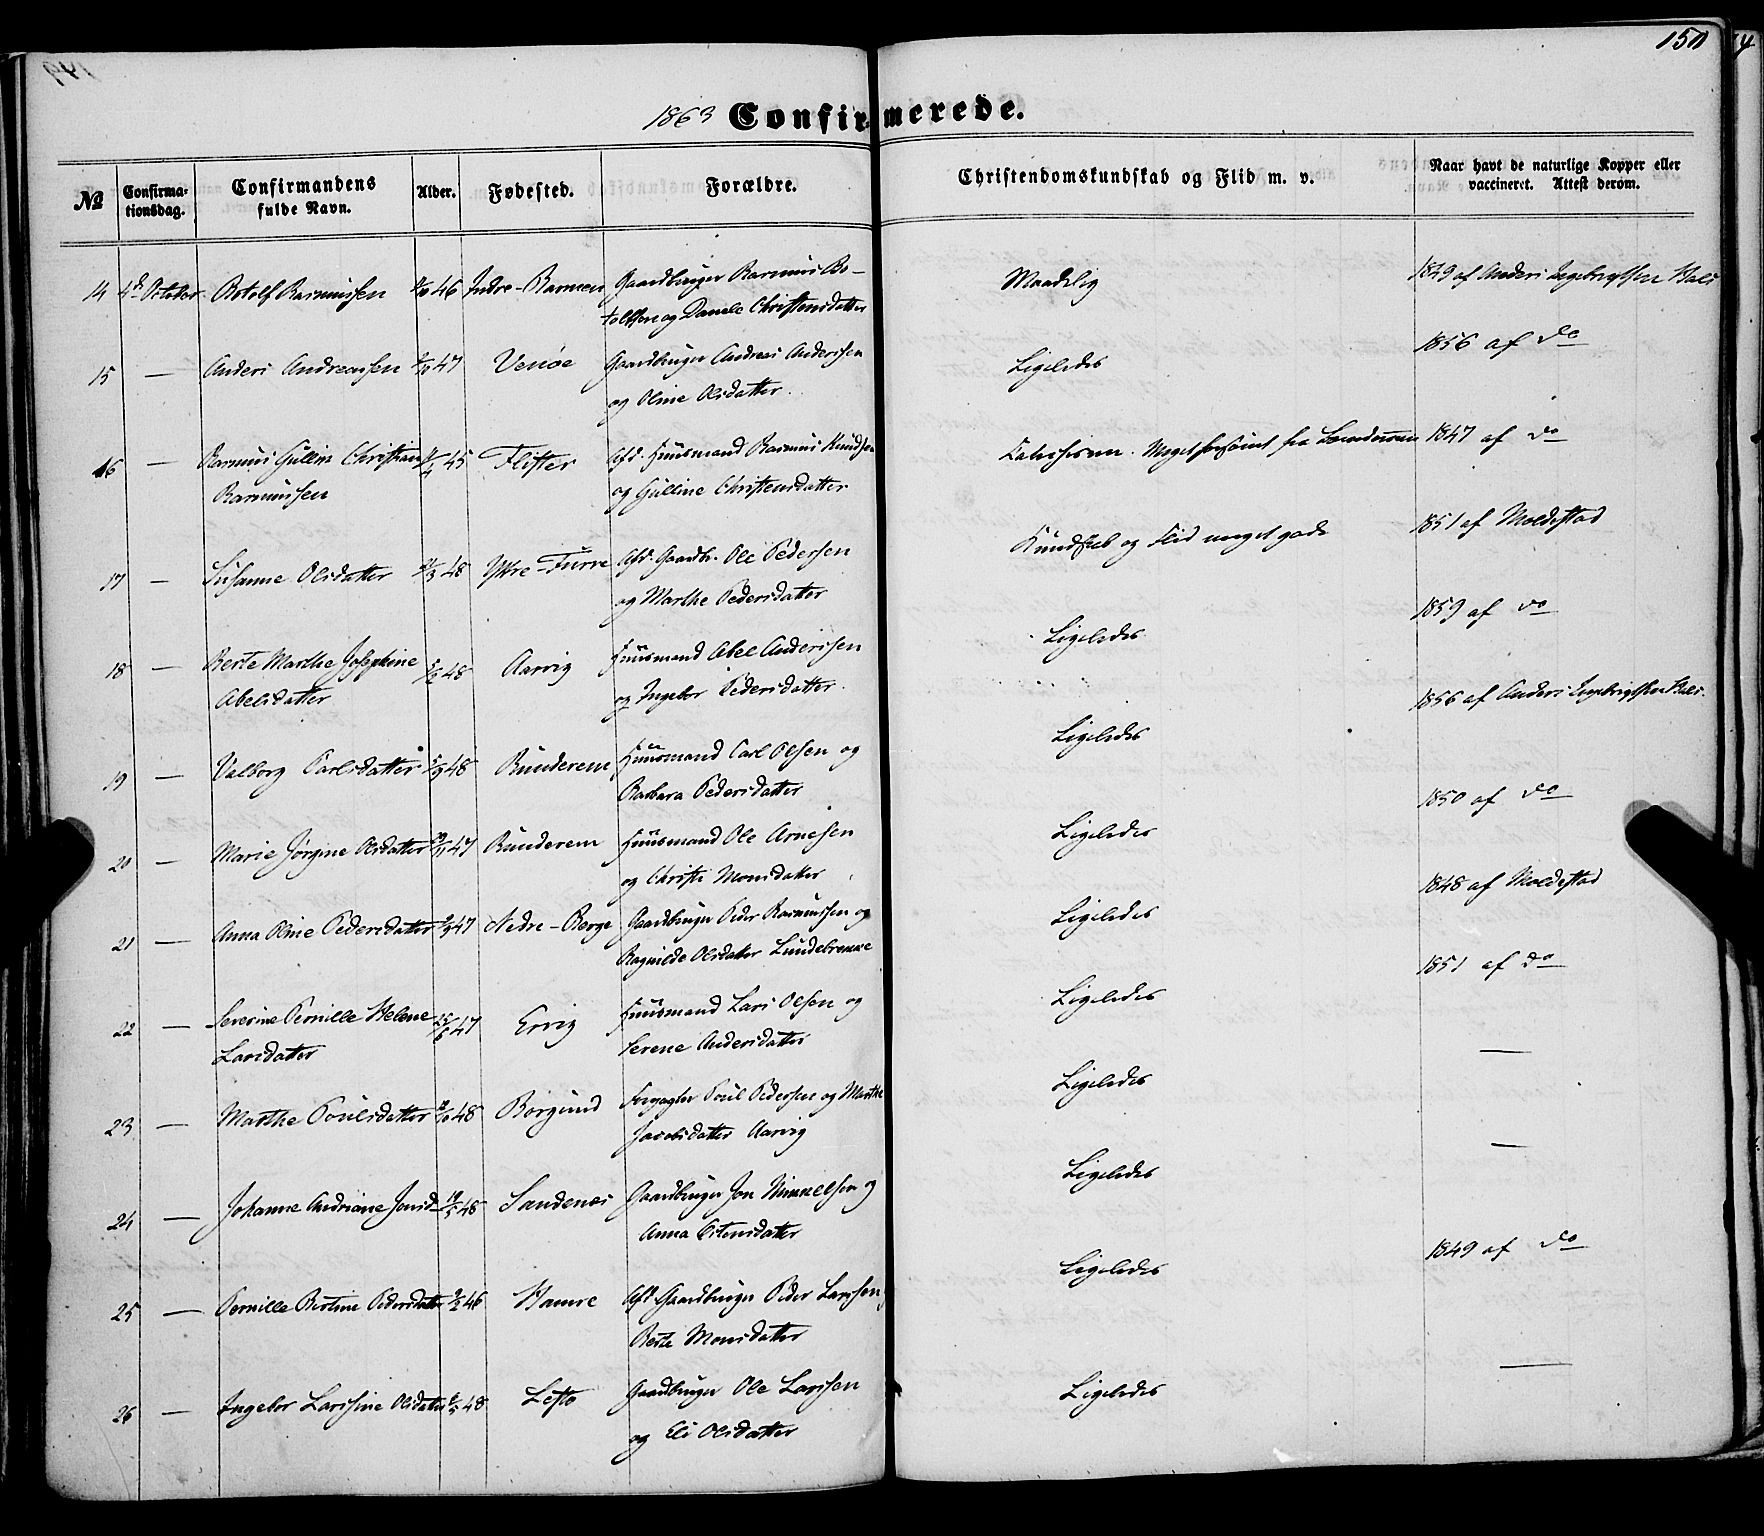 150
1863 Confirmerede.
No
Confirma-
tionsdag.
Confirmandens
fulde Navn.
Alder.
Fødested.
Forældre.
Christendomskundskab og Flid m. v.
Naar havt de naturlige Kopper eller
vaccineret. Attest derom.
14 4de October Botolf Rasmussen 46 Indre-Barmen Gaardbruger Rasmus Bo-
tolfsen og Danele Christensdatter
Maadelig
1849 af Anders Ingebrigtsen Hals
15 — Anders Andreassen 47 Venøe Gaardbruger Andreas Anderssen
og Oline Olsdatter.
Ligeledes
1856 af do
16 — Rasmus Gulline Christian 45 Flister Afd. Huusmand Rasmus Knudsen
Rasmussen og Gulline Christensdatter
Meget fra
1847 af do
17 — Susanne Olsdatter 48 Yttre-Furre Afd. Gaardbr. Ole Pedersen
og Marthe Pedersdatter
Kundskab og Flid meget gode
1851 af Moldestad
18 — Berte Marthe Josephine 48 Aarvig Huusmand Abel Anderssen
Abelsdatter og Ingebor Pedersdatter.
Ligeledes
1859 af do
19 — Valborg Carlsdatter 48 Runderem Huusmand Carl Olsen og
Barbara Pedersdatter
Ligeledes
1856 af Anders Ingebrigtsen Hals.
20 — Marie Jørgine Olsdatter 47 Runderem Huusmand Ole Arnesen
og Christi Monsdatter
Ligeledes
1850 af do
21 — Anna Oline Pedersdatter 47 Nedre-Berge Gaardbruger Peder Rasmussen og
Ragnilde Olsdatter Lundebrekke
Ligeledes
1848 af Moldestad
22 — Severine Pernille Helene 25/6 47 Ervig Huusmand Lars Olsen og
Larsdatter Serene Andersdatter
Ligeledes
1851 af do
23 — Marthe Poulsdatter 48 Borgund Poul Pedersen og Marthe
Jacobsdatter Aarvig
Ligeledes
—
24 — Johanne Andriane Jonsd. 19/5 48 Sandenæs Gaardbruger Jon Mikkelsen og
Anna Ostensdatter
Ligeledes
—
25 — Pernille Bertine Pedersdatter 46 Hamre Afd. Gaardbruger Peder Larssen,
Berte Monsdatter
Ligeledes
1849 af do
26 — Ingebor Larssine Olsdatter 48 Lefto Gaardbruger Ole Larssen
og Eli Olsdatter
Ligeledes
—